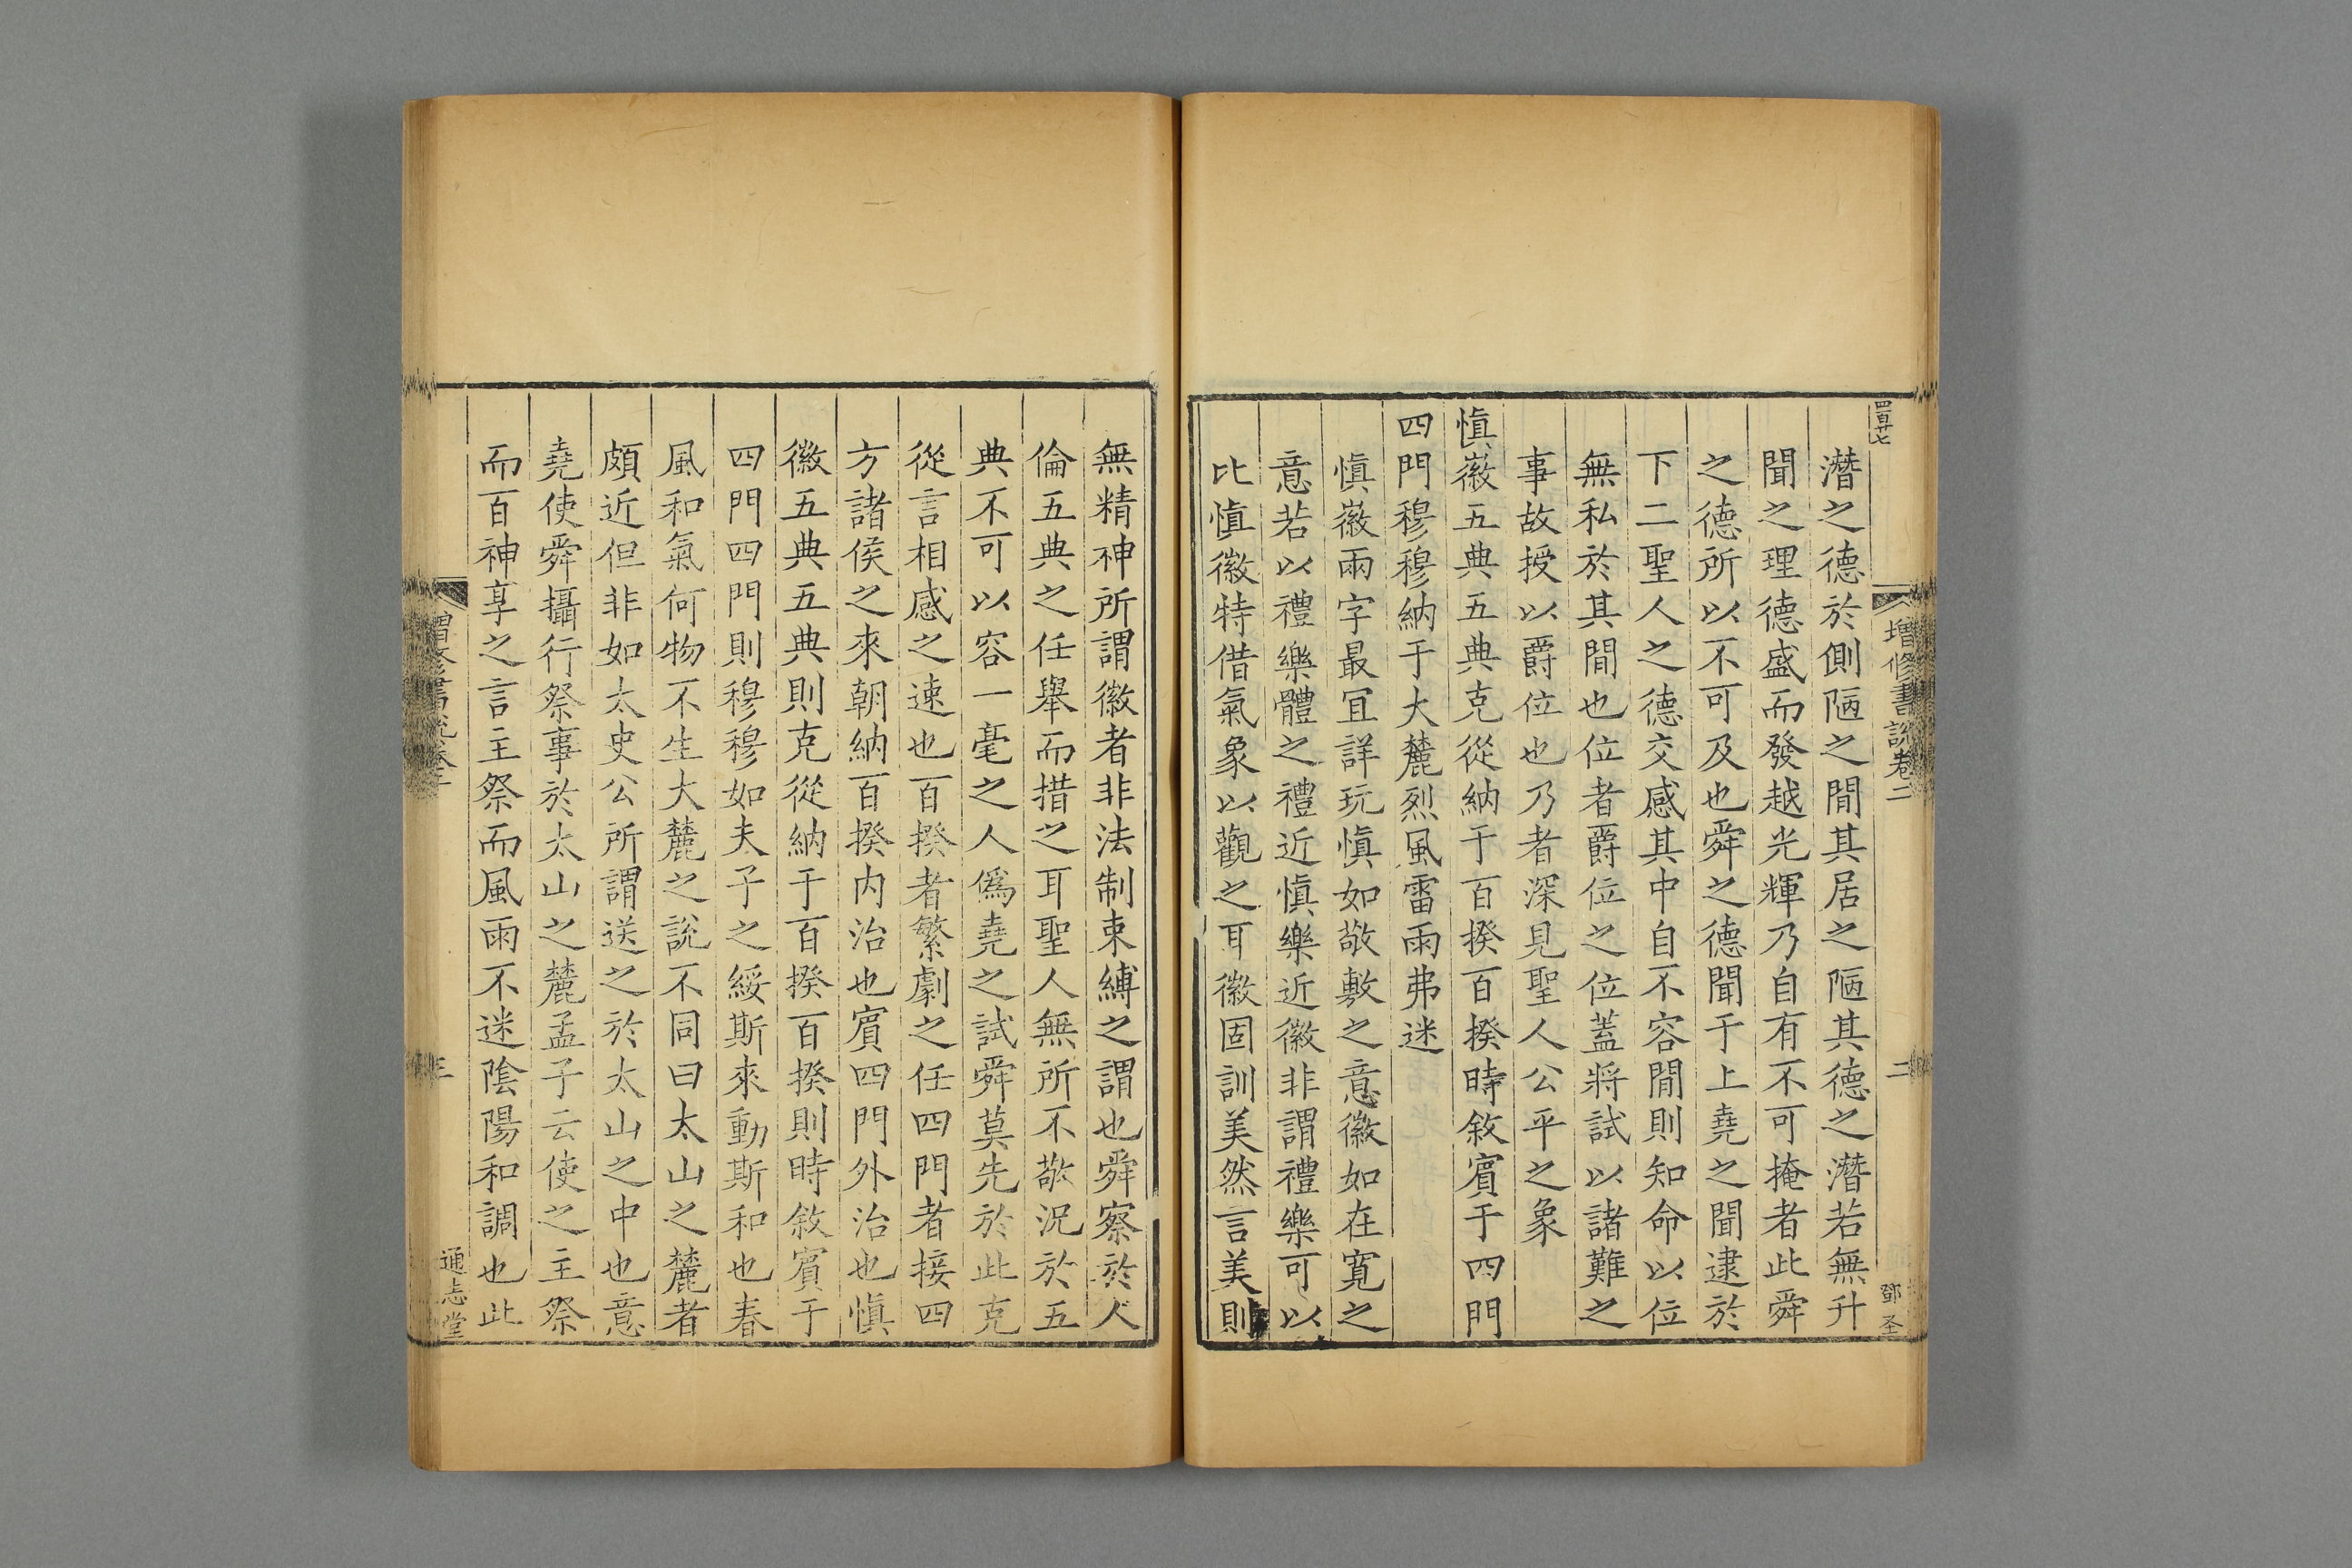 四百廿七
增修書說卷二
二
鄧圣
潛之德於側陋之間其居之陋其德之潛若無升
聞之理德盛而發越光輝乃自有不可掩者此舜
之德所以不可及也舜之德聞于上堯之聞逮於
下二聖人之德交感其中自不容間則知命以位
無私於其間也位者爵位之位蓋將試以諸難之
事故授以爵位也乃者深見聖人公平之象
慎徽五典五典克從納于百揆百揆時敘賓于四門
四門穆穆納于大麓烈風雷雨弗迷
慎徽兩字最宜詳玩慎如敬敷之意徽如在寬之
意若以禮樂體之禮近慎樂近徽非謂禮樂可以
比慎徽特借氣象以觀之耳徽固訓美然言美則
無精神所謂徽者非法制束縛之謂也舜察於人
倫五典之任舉而措之耳聖人無所不敬況於五
典不可以容一毫之人偽堯之試舜莫先於此克
從言相感之速也百揆者繁劇之任四門者接四
方諸侯之來朝納百揆內治也賓四門外治也慎
徽五典五典則克從納于百揆百揆則時敘賓于
四門四門則穆穆如夫子之綏斯來動斯和也春
風和氣何物不生大麓之說不同曰太山之麓者
頗近但非如太史公所謂送之於太山之中也意
堯使舜攝行祭事於太山之麓孟子云使之主祭
而百神享之言主祭而風雨不迷陰陽和調也此
三
通志堂